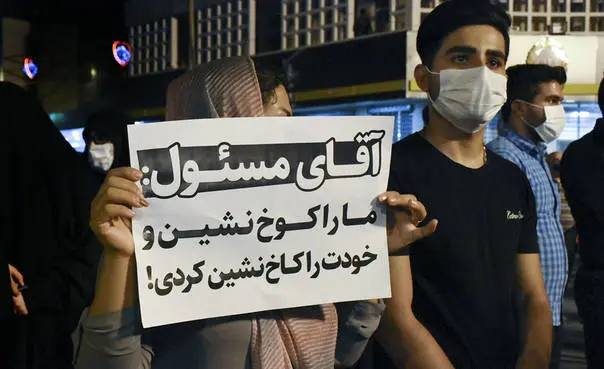 آقای مسئول:
ما را کوخ نشین و
خودت را کاخ نشین کردی!